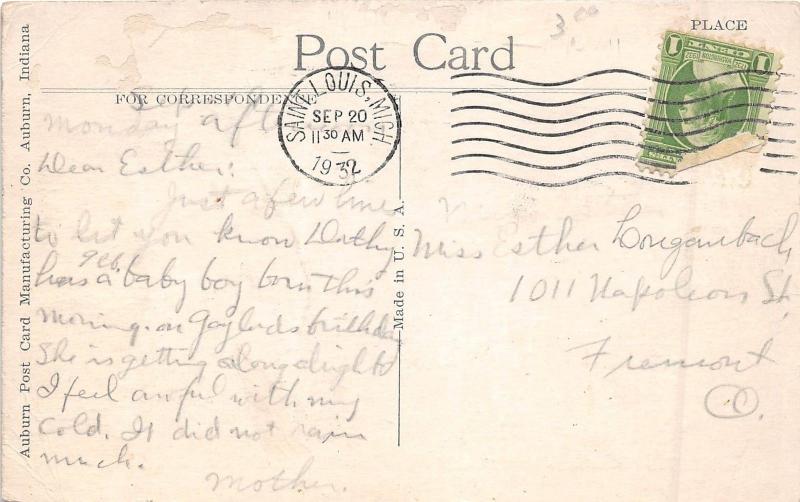 3.00
PLACE
Post Card
FOR CORRESPONDENCE
SAINT LOUIS, MICH.
SEP 20
11 30 AM
1932
1
1
Monday
Dear Esther:
Just a few lines
to let you know Dorthy
has a 9 lb. baby boy born this
morning on Gaylords birthday
She is getting along alright
I feel awful with my
cold. It did not rain
much.
Mother.
Miss Esther Longanbach
1011 Napoleon St.
Fremont
O.
Made in U. S. A.
Auburn Post Card Manufacturing Co. Auburn, Indiana